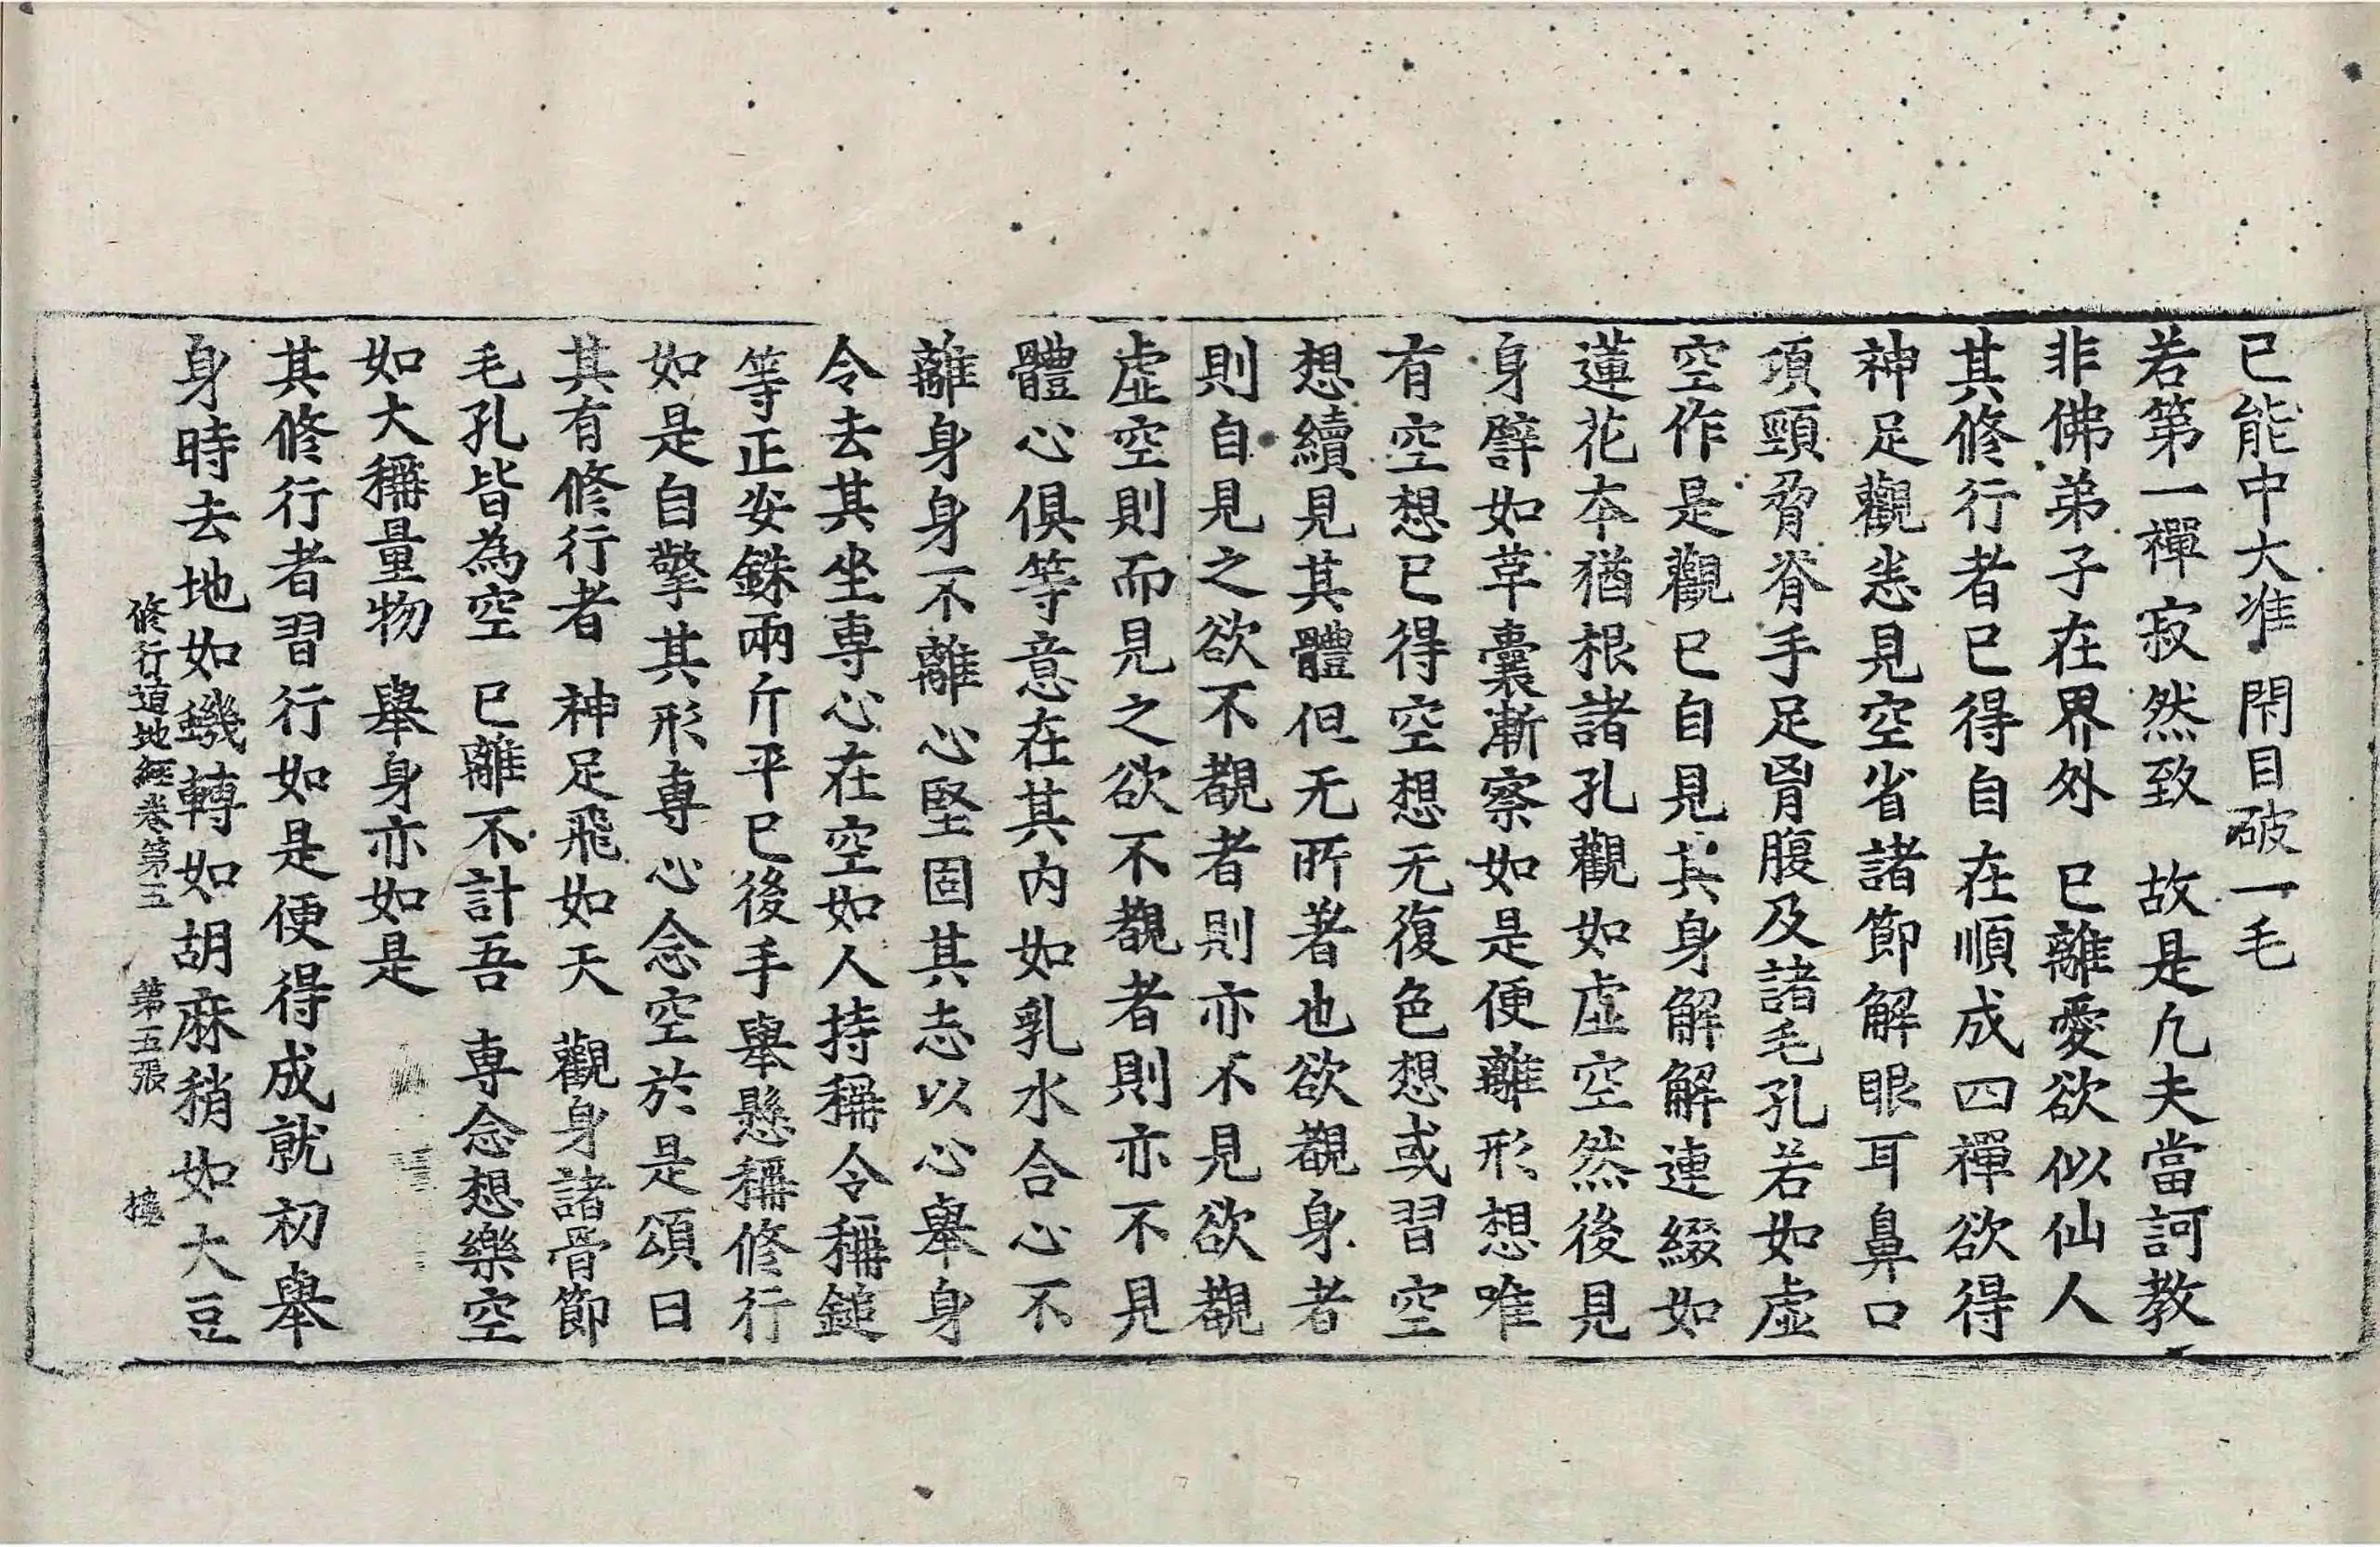 已能中大准 閇目破一毛
若第一禪寂然致 故是凢夫當訶教
非佛弟子在界外 已離愛欲似仙人
其修行者已得自在順成四禪欲得
神足觀悉見空省諸節解眼耳鼻口
項頸脅脊手足胷腹及諸毛孔若如虛
空作是觀已自見其身解解連綴如
蓮花本猶根諸孔觀如虛空然後見
身譬如革囊漸察如是便離形想唯
有空想已得空想无復色想或習空
想續見其體但无所著也欲觀身者
則自見之欲不觀者則亦不見欲觀
虛空則而見之欲不觀者則亦不見
體心俱等意在其內如乳水合心不
離身身不離心堅固其志以心舉身
令去其坐専心在空如人持稱令稱鎚
等正安銖兩斤平已後手舉懸稱修行
如是自擎其形専心念空於是頌曰
其有修行者 神足飛如天 觀身諸骨節
毛孔皆為空 已離不計吾 専念想樂空
如大稱量物 舉身亦如是
其修行者習行如是便得成就初舉
身時去地如蟣轉如胡麻稍如大豆
修行道地經卷第五 第五張